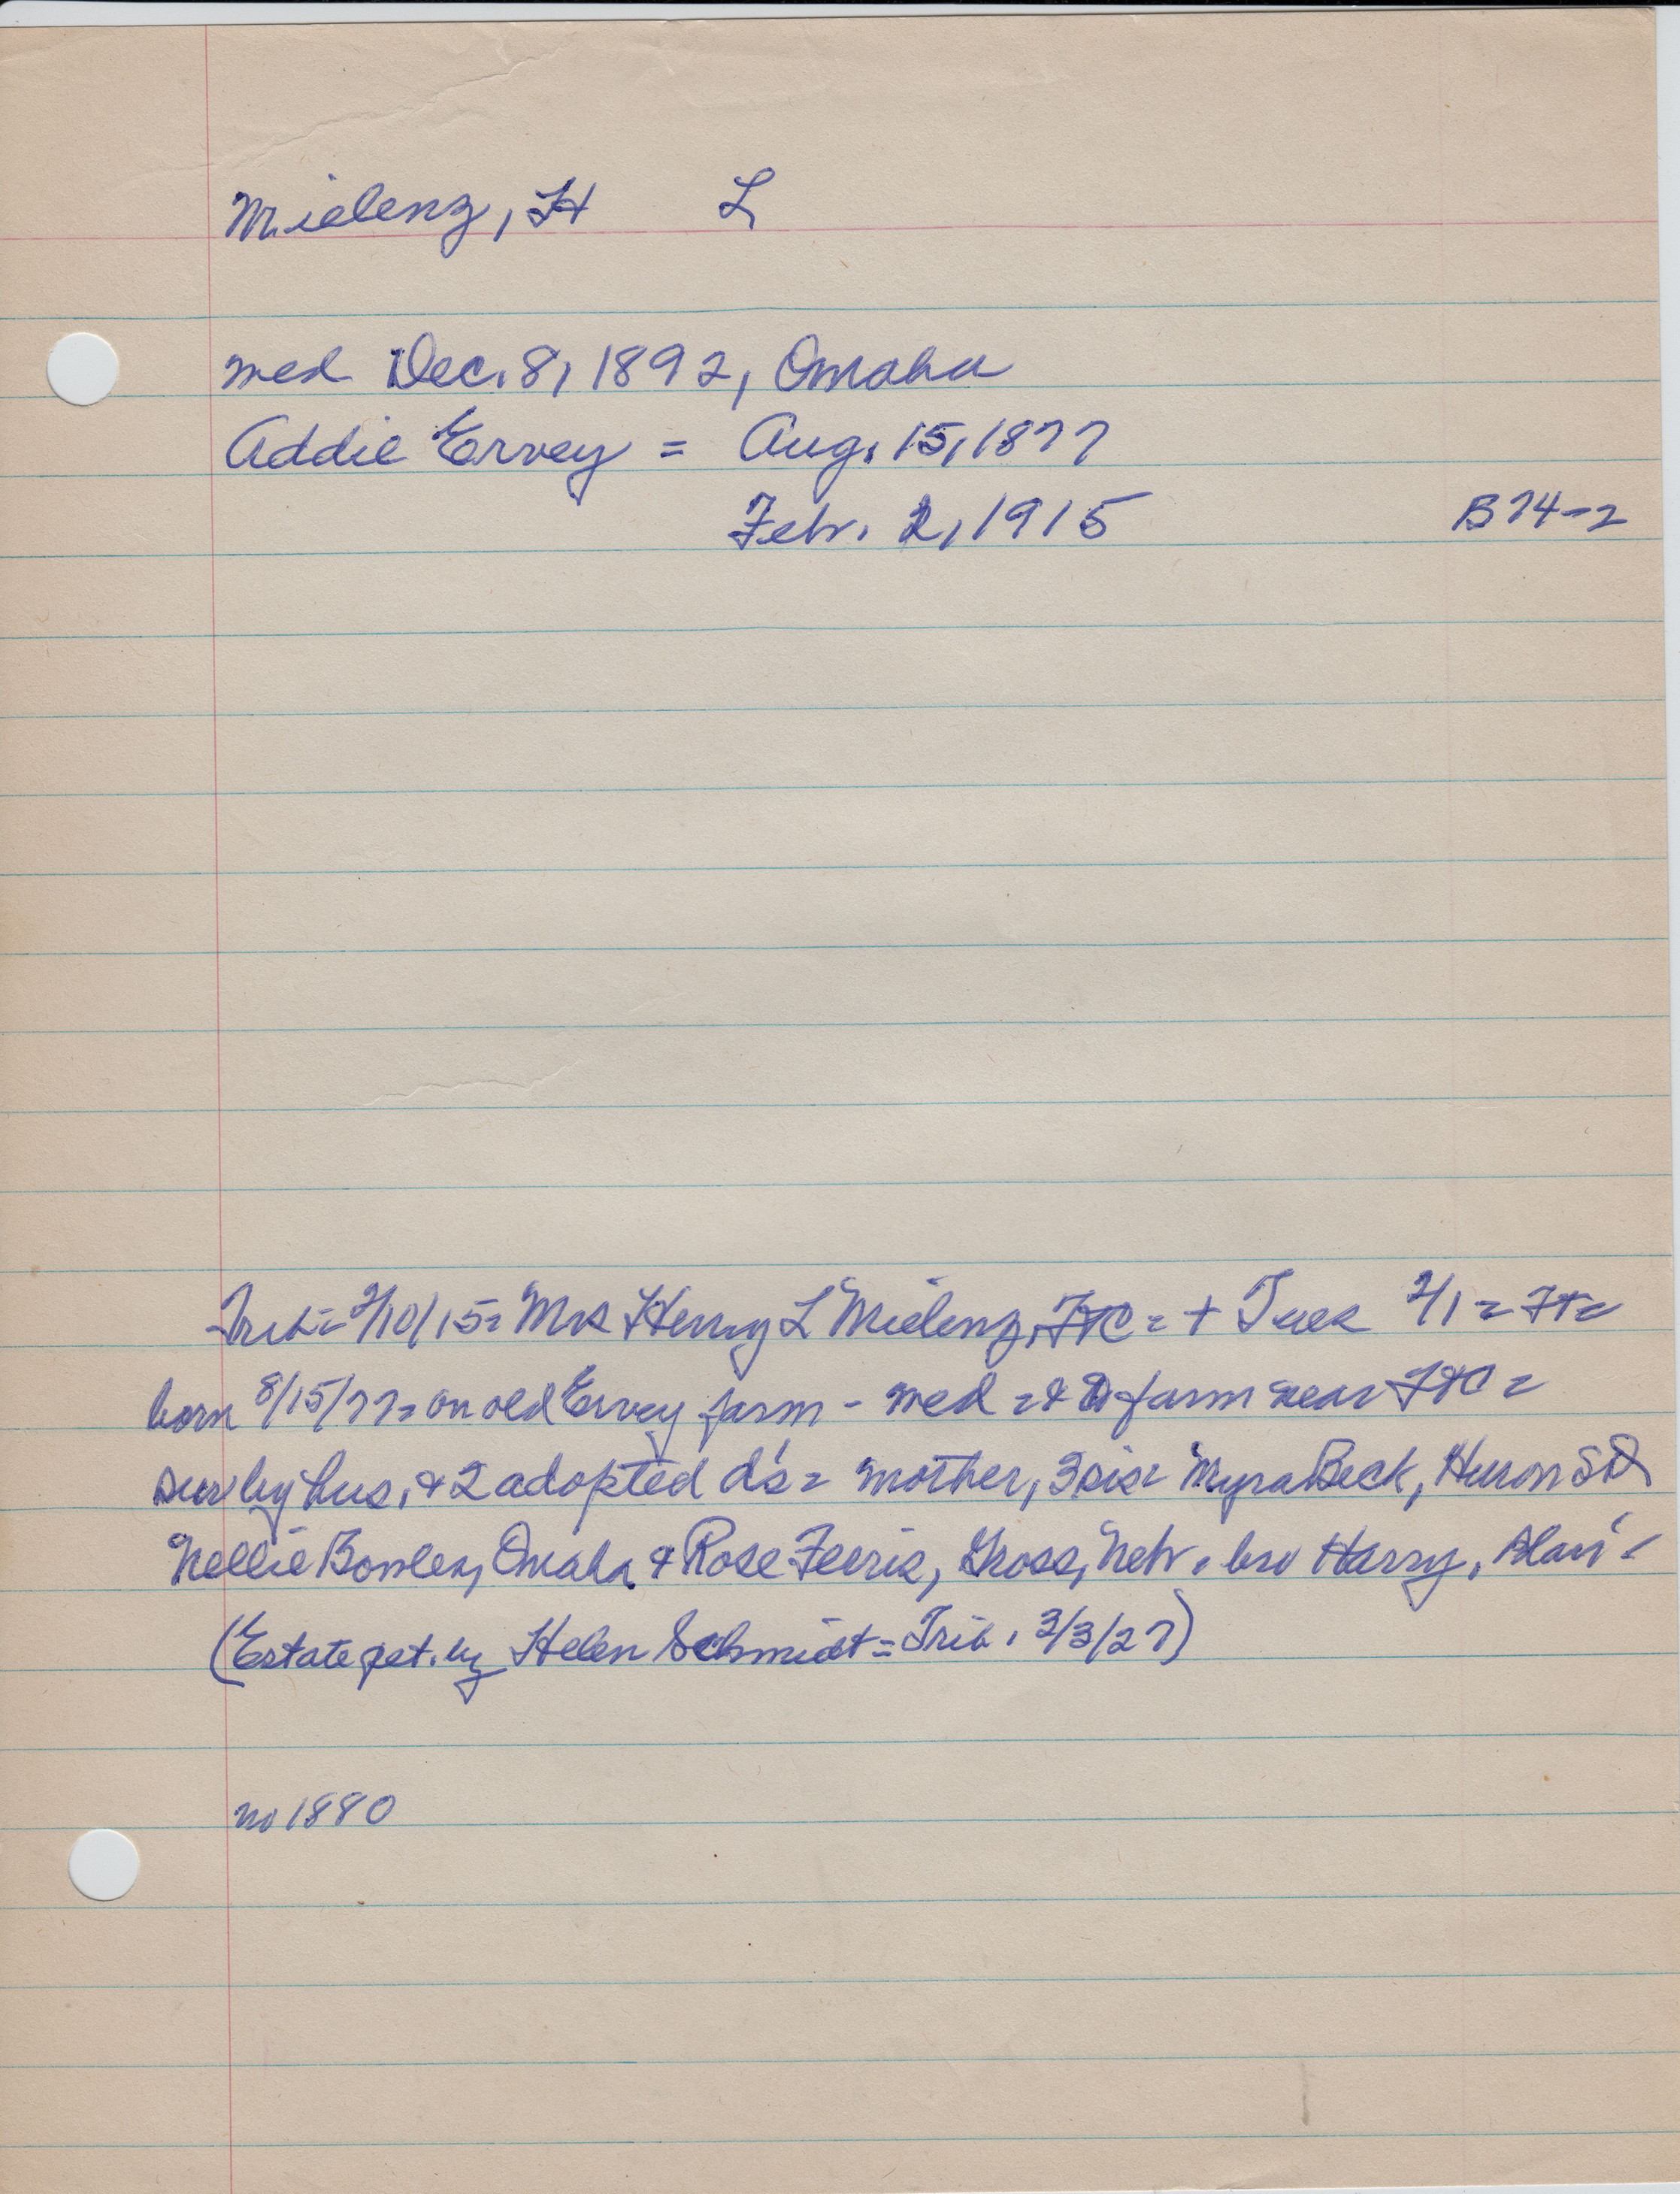 Mielenz, H L
med Dec. 8, 1892, Omaha
Addie Ervey = Aug. 15, 1877
Febr. 2, 1915 B 74-2
Trib = 2/10/15 = Mrs Henry L Mielenz, FtC = + Tues 2/1 = Ft =
born 8/15/77 = on old Ervey farm - med = & farm near FtC =
surv by hus, & 2 adopted d's = mother, 3 sis = Myra Beck, Huron SD
Nellie Bowles, Omaha & Rose Feeris, Gross, Nebr. bro Harry, Blair =
(Estate pet. by Helen Schmidt = Trib. 3/3/27)
no 1880